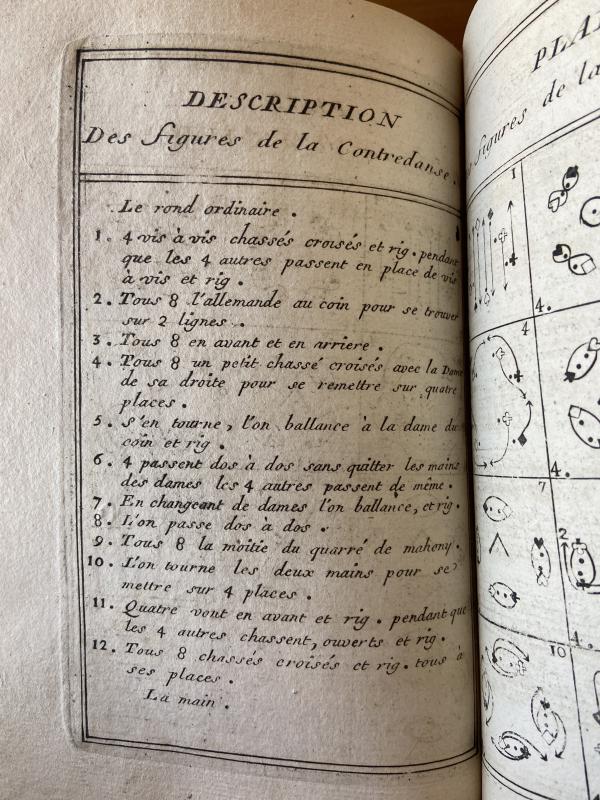 DESCRIPTION
Des figures de la Contredanse.
Le rond ordinaire.
1. 4 vis à vis chassés croisés et rig. pendant
que les 4 autres passent en place de vis
à vis et rig.
2. Tous 8 l'allemande au coin pour se trouver
sur 2 lignes.
3. Tous 8 en avant et en arriere.
4. Tous 8 un petit chassé croisés avec la Dame
de sa droite pour se remettre sur quatre
places.
5. S'en tourne, l'on ballance à la dame du
coin et rig.
6. 4 passent dos à dos sans quitter les mains
des dames les 4 autres passent de même.
7. En changeant de dames l'on ballance, et rig.
8. L'on passe dos à dos.
9. Tous 8 la moitie du quarré de mahony.
10. L'on tourne les deux mains pour se
mettre sur 4 places.
11. Quatre vont en avant et rig. pendant que
les 4 autres chassent, ouverts et rig.
12. Tous 8 chassés croisés et rig. tous à
ses places.
La main.
PLA
figures de la
1
4.
4
4.
7
2
10